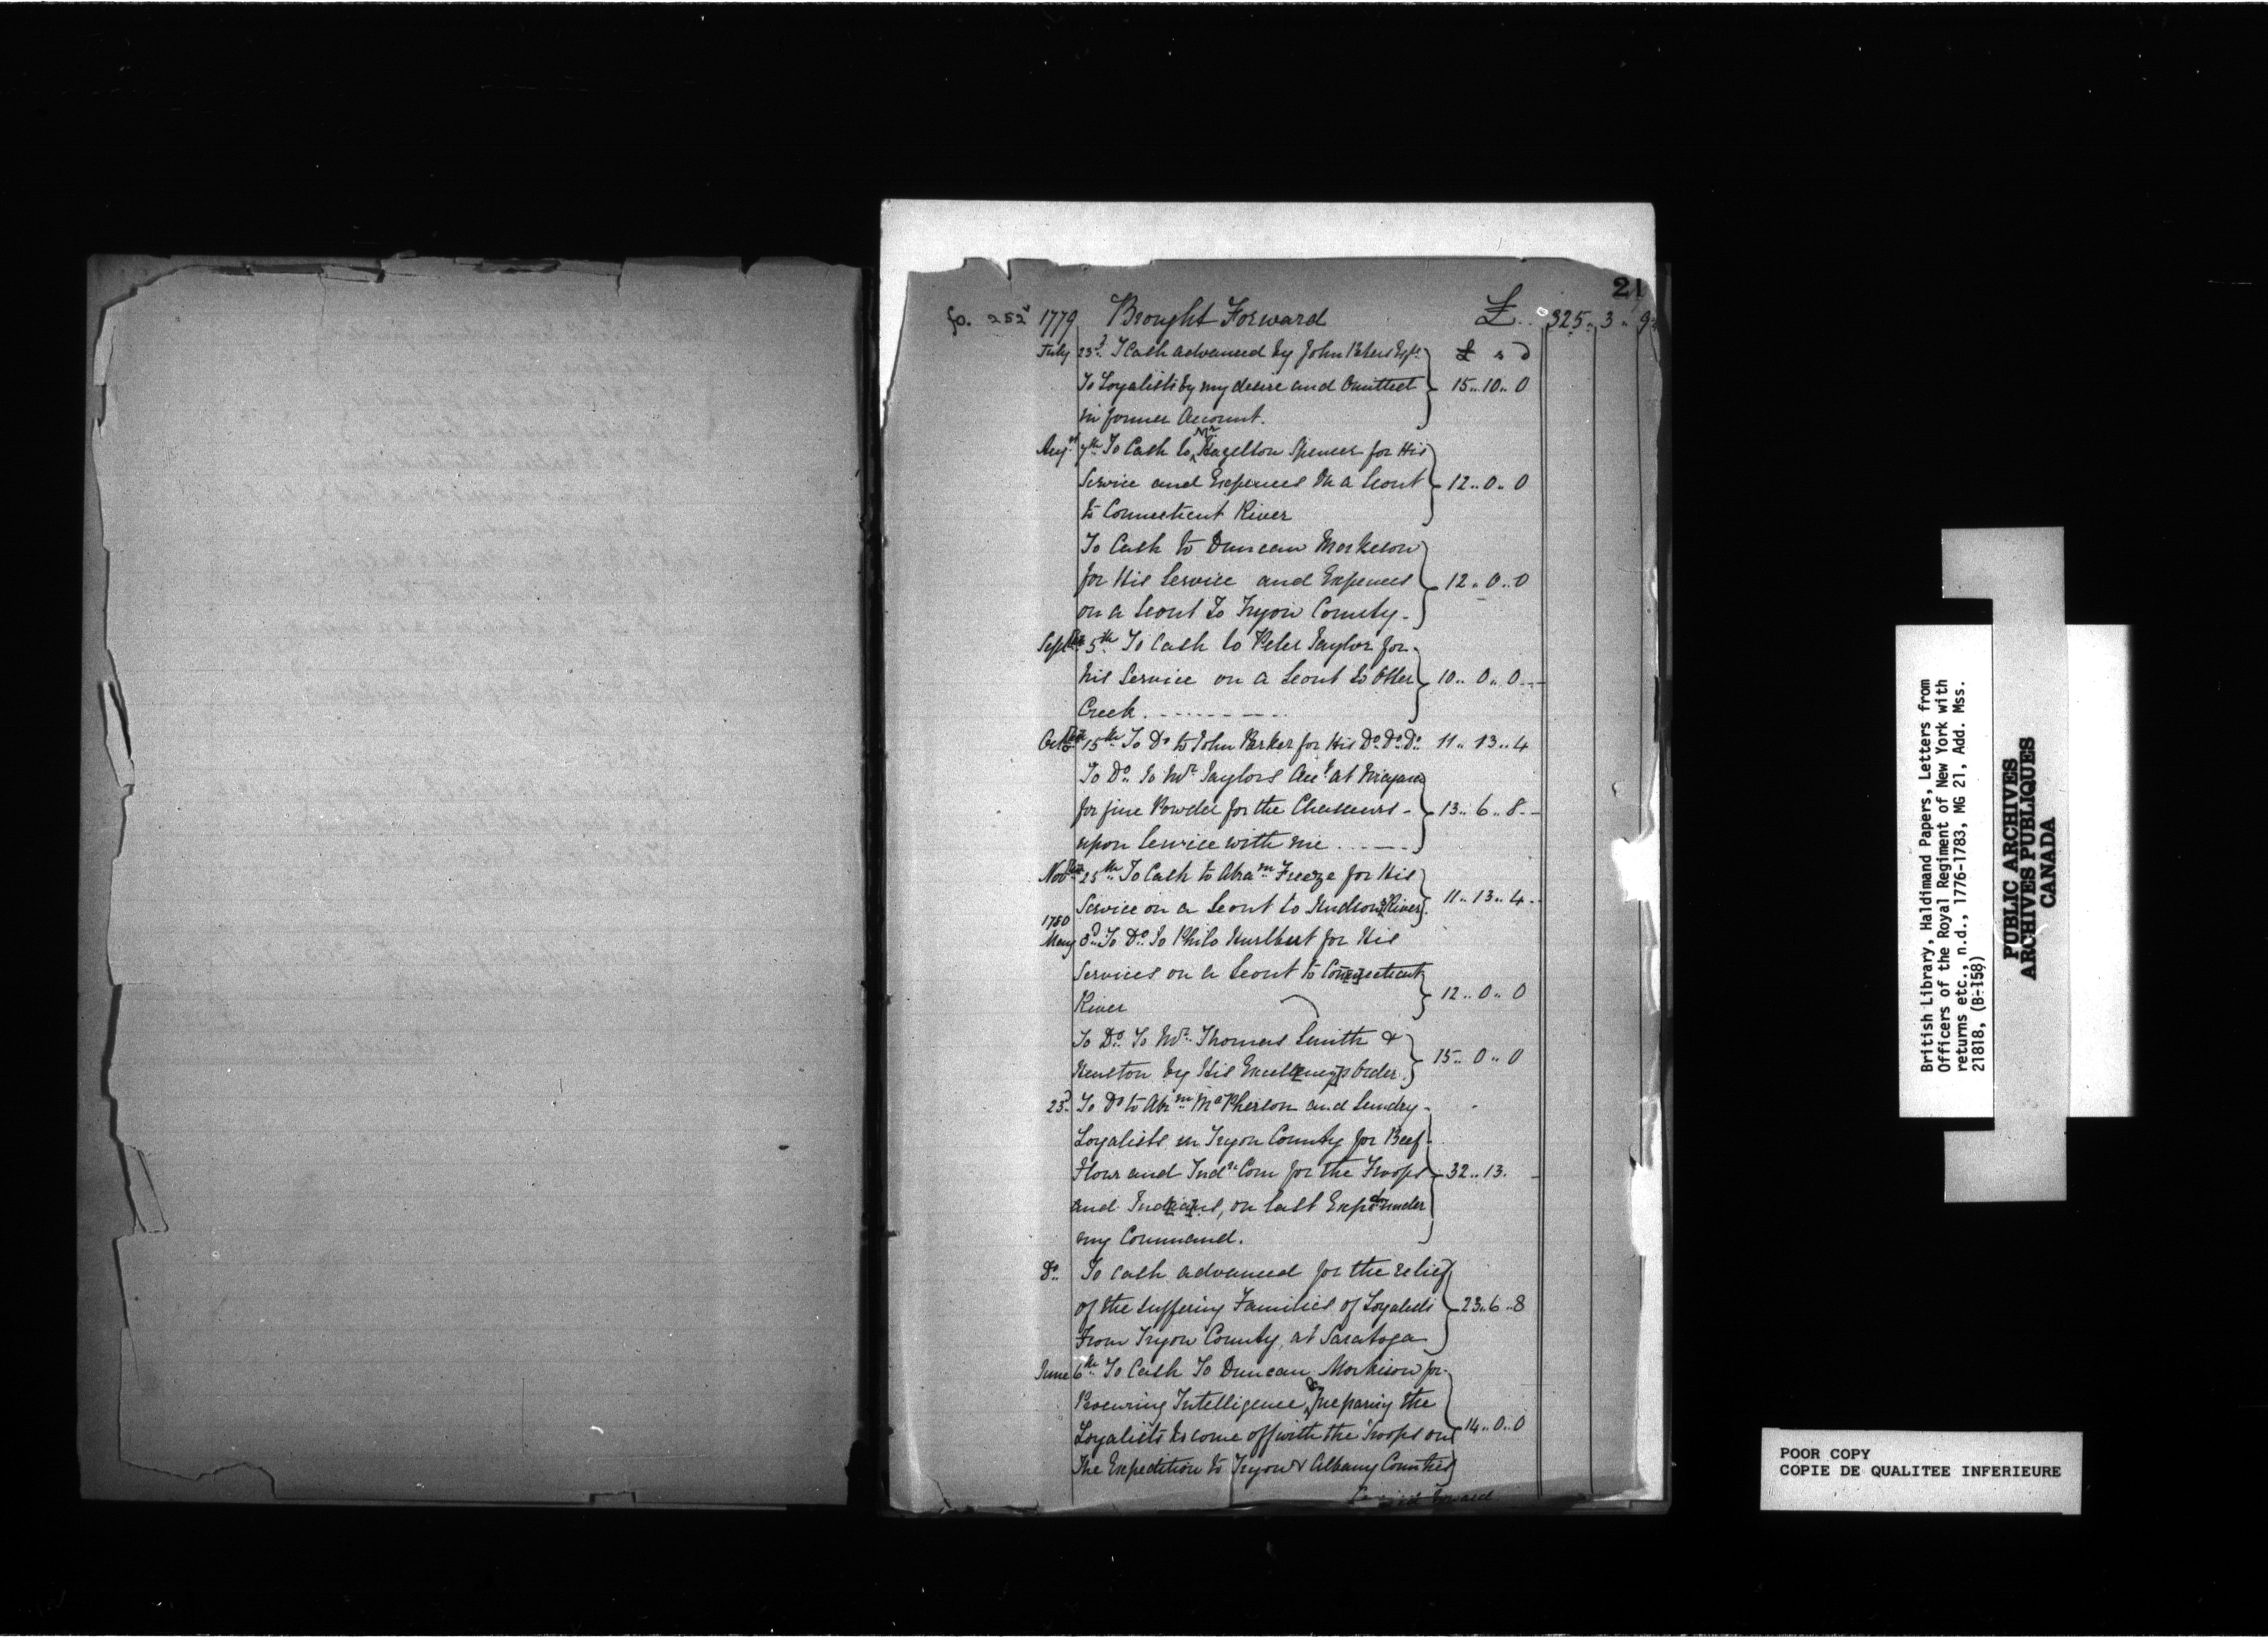 21
fo. 252ᵛ 1779 Brought Forward £.. 325.. 3.. 9
July 23ᵈ. T Cash advanced by John Peters Esqʳ. £ s d
To Loyalists by my desire and Omitted 15.. 10.. 0
in former Account.
Augˢᵗ 7ᵗʰ To Cash to Mʳ Hazelton Spencer for His
Service and Expences On a Scout 12.. 0.. 0
to Connecticut River
To Cash to Duncan Morkeson
for His Service and Expences 12.. 0.. 0
on a Scout To Tryon County.
Septᵇᵉʳ 5ᵗʰ To Cash to Peter Taylor for
his Service on a Scout to Otter 10.. 0.. 0
Creek
Octᵇᵉʳ 15ᵗʰ To Dᵒ to John Parker for His Dᵒ. Dᵒ. Dᵒ. 11.. 13.. 4
To Dᵒ. To Mʳ Taylors Accᵗ at Niagara
for fine Powder for the Chasseurs - 13.. 6.. 8
upon Service with me
Novᵇᵉʳ 25ᵗʰ To Cash to Abraᵐ Freeze for His
Service on a Scout to Hudsons River 11.. 13.. 4
1780
May 3ᵈ. To Dᵒ. To Philo Hurlbert for His
Services on a Scout to Connecticut
River 12.. 0.. 0
To Dᵒ. To Mʳ. Thomas Smith &
Heuston by His Excellencys Order. 15.. 0.. 0
23ᵈ. To Dᵒ to Abʳᵐ McPherson and Sundry
Loyalists in Tryon County for Beef
Flour and Indⁿ Corn for the Troops 32.. 13.
and Indians, on last Expᵈⁿ under
my Command.
Dᵒ. To Cash advanced for the relief
of the suffering Families of Loyalists 23.. 6.. 8
From Tryon County, at Saratoga
June 6ᵗʰ To Cash To Duncan Morkison for
Procuring Intelligence, & Preparing the
Loyalists to come off with the Troops on 14.. 0.. 0
The Expedition to Tryon & Albany Counties
Forward
British Library, Haldimand Papers, Letters from
Officers of the Royal Regiment of New York with
returns etc., n.d., 1776-1783, MG 21, Add. Mss.
21818, (B-158)
PUBLIC ARCHIVES
ARCHIVES PUBLIQUES
CANADA
POOR COPY
COPIE DE QUALITEE INFERIEURE